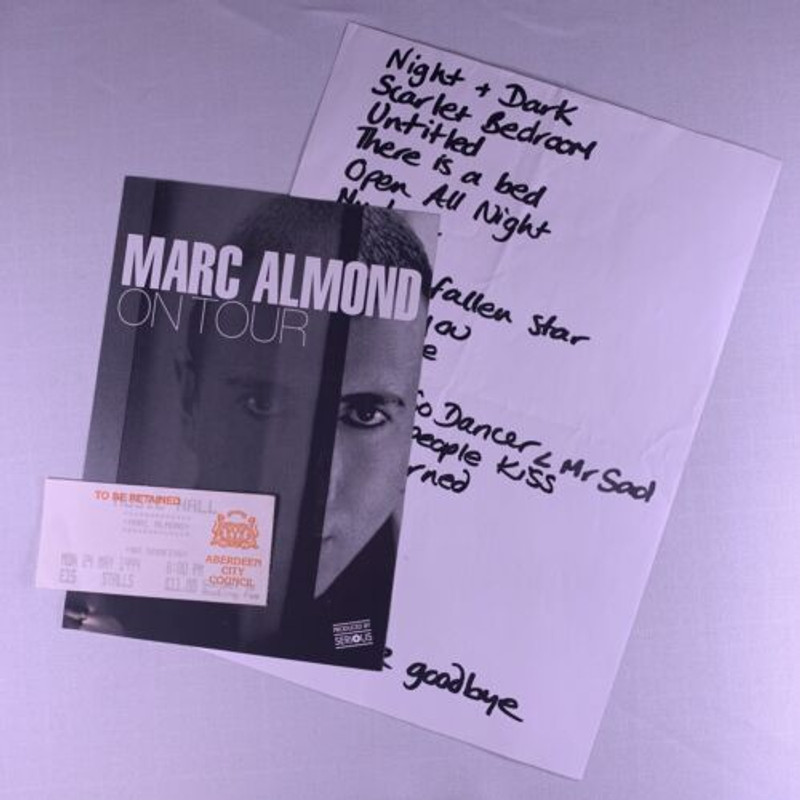 Night + Dark
Scarlet Bedroom
Untitled
There is a bed
Open All Night
fallen star
So Dancer < Mr Sad
people kiss
rned
goodbye
MARC ALMOND
ON TOUR
TO BE RETAINED
MUSIC HALL
MARC ALMOND
MON 24 MAY 1999 8:00 PM
E15 STALLS
ABERDEEN
CITY
COUNCIL
PRODUCED BY
SERIOUS